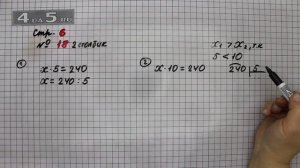 4DA5.RU
Стр. 6
№ 18 2 столбик
① x · 5 = 240
x = 240 : 5
② x · 10 = 240
x₁ > x₂, т.к
5 < 10
240 5